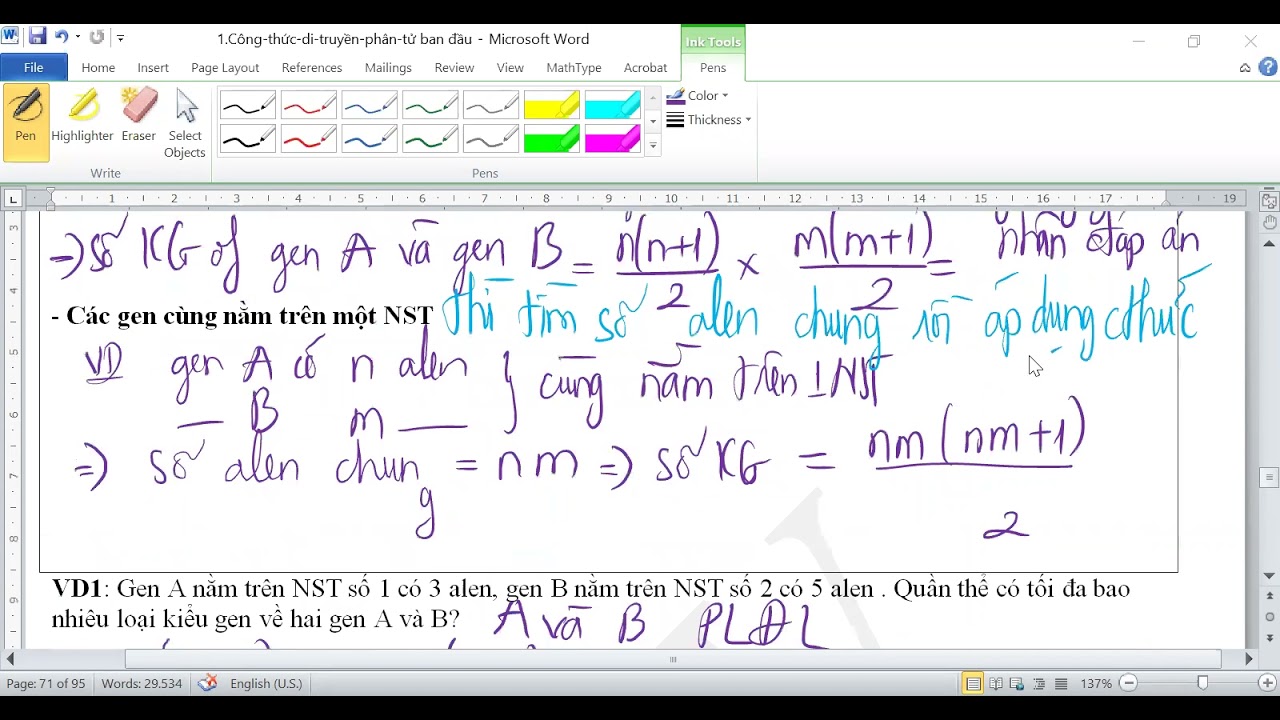 1.Công-thức-di-truyền-phân-tử ban đầu - Microsoft Word
Ink Tools
File Home Insert Page Layout References Mailings Review View MathType Acrobat Pens
Pen Highlighter Eraser Select Objects
Color
Thickness
Write Pens
1 2 3 4 5 6 7 8 9 10 11 12 13 14 15 16 17 18 19
=> số KG of gen A và gen B = n(n+1)/2 x m(m+1)/2 = nhân đáp án
- Các gen cùng nằm trên một NST thì tìm số alen chung rồi áp dụng cthức
VD gen A có n alen } cùng nằm trên 1 NST
— B m —
=> số alen chung = nm => số KG = nm(nm+1)/2
VD1: Gen A nằm trên NST số 1 có 3 alen, gen B nằm trên NST số 2 có 5 alen . Quần thể có tối đa bao
nhiêu loại kiểu gen về hai gen A và B? A và B PLĐL
Page: 71 of 95 Words: 29.534 English (U.S.) 137%